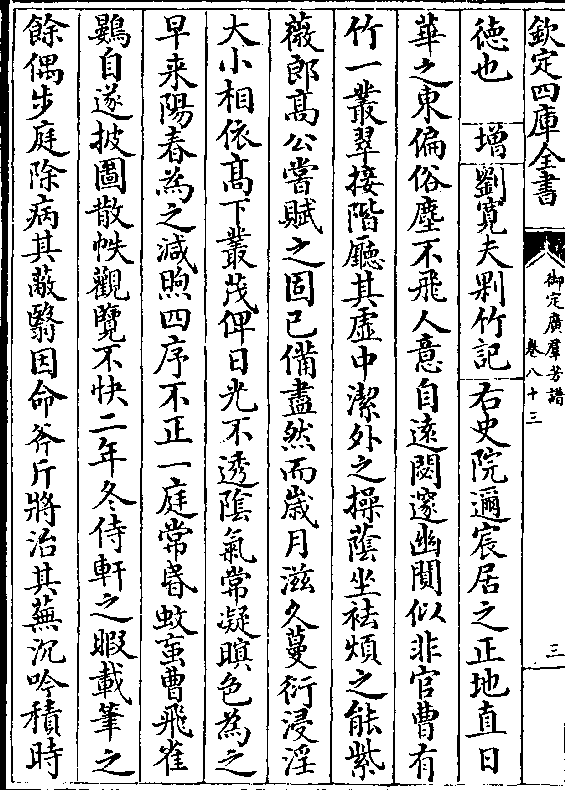 欽定四庫全書
御定廣羣芳譜
卷八十三
三
德也 增 劉寛夫剿竹記 右史院邇宸居之正地直日
華之東偏俗塵不飛人意自遠閟邃幽闃似非官曹有
竹一叢翠接階廳其虛中潔外之操蔭坐祛煩之能紫
薇郎髙公嘗賦之固已備盡然而歳月滋久蔓衍浸淫
大小相依髙下叢茂俾日光不透陰氣常凝暝色為之
早来陽春為之減煦四序不正一庭常昬蚊䖟曹飛雀
鷃自遂披圖散帙觀覽不快二年冬侍軒之暇載筆之
餘偶步庭除病其蔽翳因命斧斤將治其蕪沉吟積時